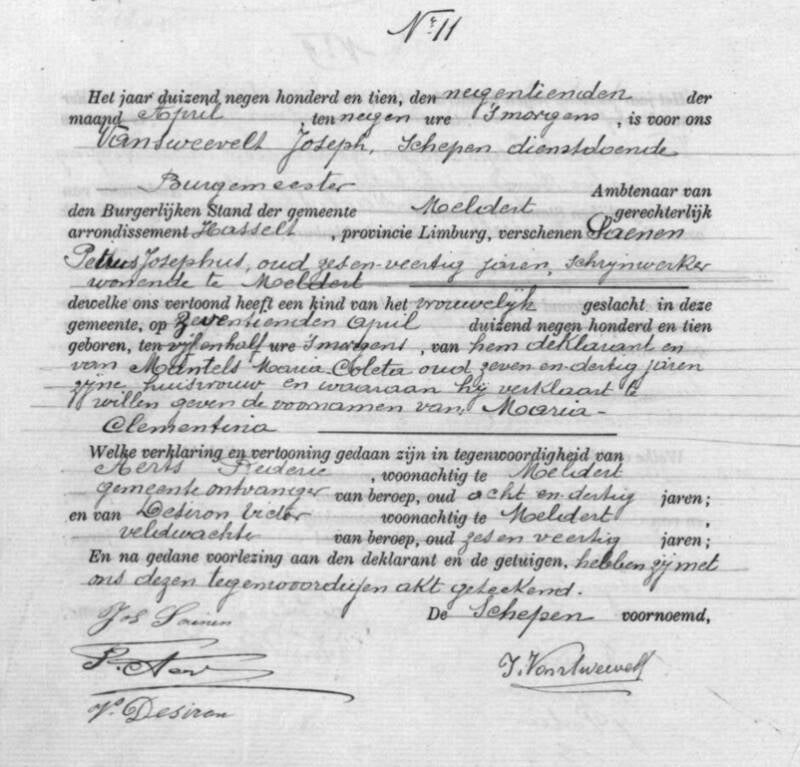 Nr 11
Het jaar duizend negen honderd en tien, den negentienden der
maand April, ten negen ure 's morgens, is voor ons
Vansweevelt Joseph, Schepen dienstdoende
Burgemeester Ambtenaar van
den Burgerlijken Stand der gemeente Meldert gerechterlijk
arrondissement Hasselt, provincie Limburg, verschenen Saenen
Petrus Josephus, oud zes en veertig jaren, schrijnwerker
wonende te Meldert
dewelke ons vertoond heeft een kind van het vrouwelijk geslacht in deze
gemeente, op zeventienden april duizend negen honderd en tien
geboren, ten vijf en half ure 's morgens, van hem deklarant en
van Mantels Maria Coleta oud zeven en dertig jaren
zijne huisvrouw en waaraan hij verklaart te
willen geven de voornamen van Maria-
Clementina
Welke verklaring en vertooning gedaan zijn in tegenwoordigheid van
Aerts, woonachtig te Meldert
gemeente ontvanger van beroep, oud acht en dertig jaren;
en van Desiron Victor woonachtig te Meldert,
veldwachte van beroep, oud zes en veertig jaren;
En na gedane voorlezing aan den deklarant en de getuigen, hebben zij met
ons dezen tegenwoordigen akt geteekend.
De Schepen voornoemd,
Jos
J. Vansweevelt
Vr Desiron